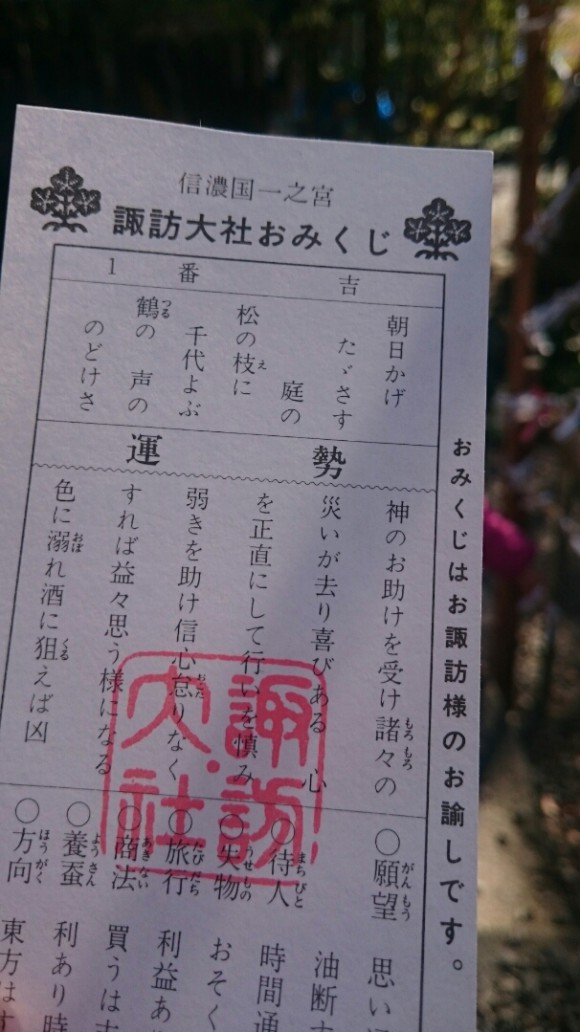 信濃国一之宮
諏訪大社おみくじ
吉 番 1
朝日かげ
たゞさす
庭の
松の枝に
千代よぶ
鶴の 声の
のどけさ
運 勢
神のお助けを受け諸々の
災いが去り喜びある 心
を正直にして行いを慎み
弱きを助け信心怠りなく
すれば益々思う様になる
色に溺れ酒に狙えば凶
諏訪大社
○願望 思い
油断す
○待人 時間通
○失物 おそく
○旅行 利益あ
○商法 買うは
○養蚕 利あり時
○方向 東方は
おみくじはお諏訪様のお諭しです。